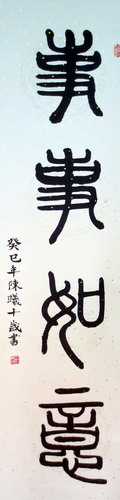 事事如意
癸巳年陳曦十歲書